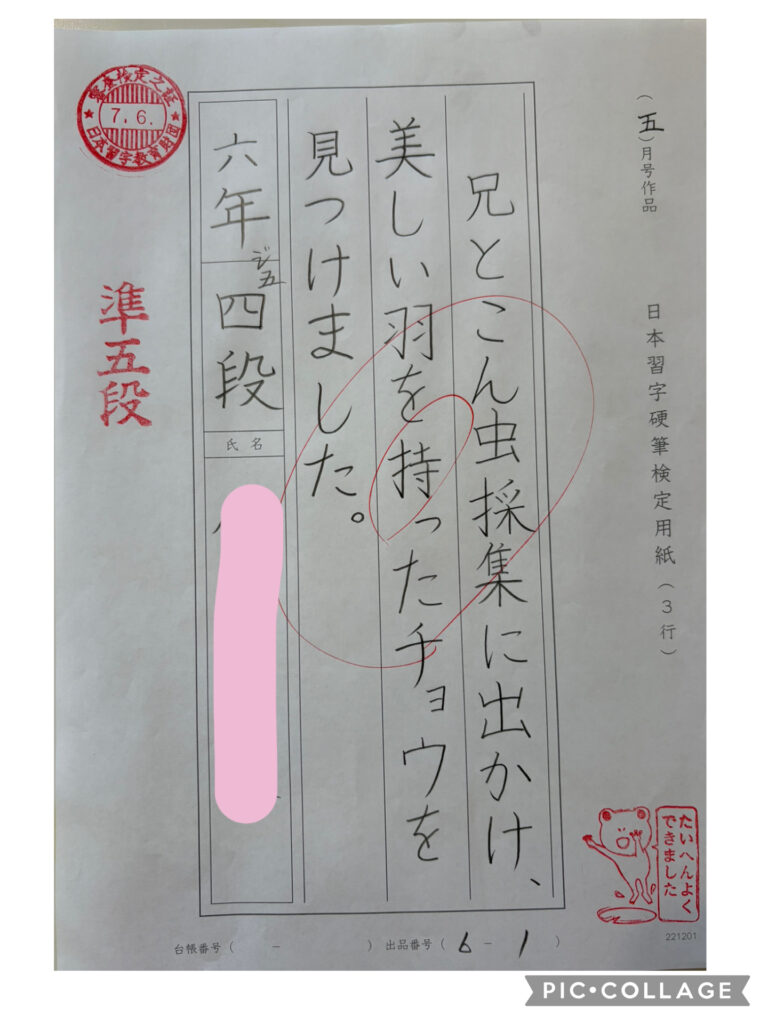 （五）月号作品
日本習字硬筆検定用紙（３行）
兄とこん虫採集に出かけ、
美しい羽を持ったチョウを
見つけました。
六年
ジ五
四段
氏名
7.6.
日本習字教育財団
準五段
たいへんよく
できました
221201
台帳番号（ － ）
出品番号（ 6 － 1 ）
PIC•COLLAGE